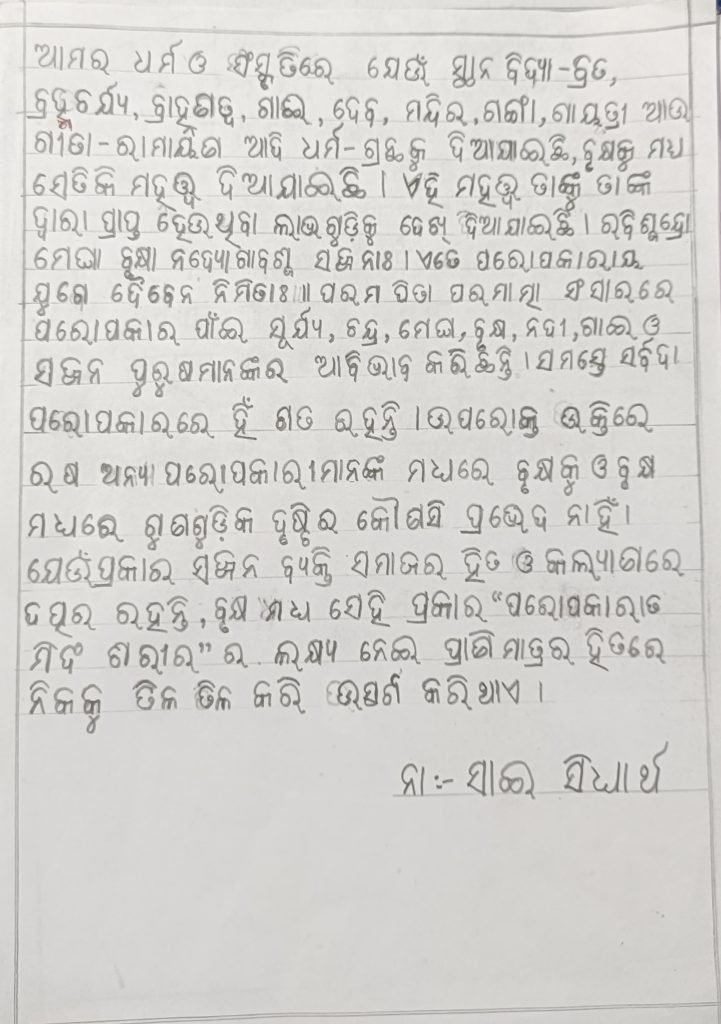 ଆମର ଧର୍ମ ଓ ସଂସ୍କୃତିରେ ଯେଉଁ ସ୍ଥାନ ବିଦ୍ୟା-ବ୍ରତ,
ବ୍ରହ୍ମଚର୍ଯ୍ୟ, ବ୍ରାହ୍ମଣତ୍ୱ, ଗାଈ, ଦେବ, ମନ୍ଦିର, ଗଙ୍ଗା, ଗାୟତ୍ରୀ ଆଉ
ଗୀତା-ରାମାୟଣ ଆଦି ଧର୍ମ-ଗ୍ରନ୍ଥକୁ ଦିଆଯାଇଛି, ବୃକ୍ଷକୁ ମଧ୍ୟ
ସେତିକି ମହତ୍ତ୍ୱ ଦିଆଯାଇଛି । ଏହି ମହତ୍ତ୍ୱ ତାଙ୍କୁ ତାଙ୍କ
ଦ୍ୱାରା ପ୍ରାପ୍ତ ହେଉଥିବା ଲାଭଗୁଡ଼ିକୁ ଦେଖି ଦିଆଯାଇଛି । ରବିଶ୍ଚନ୍ଦ୍ରୋ
ମେଘା ବୃକ୍ଷା ନଦ୍ୟୋ ଗାବଶ୍ଚ ସଜ୍ଜନାଃ । ଏତେ ପରୋପକାରାୟ
ଯୁଗେ ଦୈବେନ ନିର୍ମିତାଃ ॥ ପରମ ପିତା ପରମାତ୍ମା ସଂସାରରେ
ପରୋପକାର ପାଁଇ ସୂର୍ଯ୍ୟ, ଚନ୍ଦ୍ର, ମେଘ, ବୃକ୍ଷ, ନଦୀ, ଗାଈ ଓ
ସଜ୍ଜନ ପୁରୁଷମାନଙ୍କର ଆବିର୍ଭାବ କରିଛନ୍ତି । ସମସ୍ତେ ସର୍ବଦା
ପରୋପକାରରେ ହିଁ ରତ ରହନ୍ତି । ଉପରୋକ୍ତ ଉକ୍ତିରେ
ଋଷି ଅନ୍ୟ ପରୋପକାରୀମାନଙ୍କ ମଧ୍ୟରେ ବୃକ୍ଷକୁ ଓ ବୃକ୍ଷ
ମଧ୍ୟରେ ଗୁଣଗୁଡ଼ିକ ଦୃଷ୍ଟିର କୌଣସି ପ୍ରଭେଦ ନାହିଁ ।
ଯେଉଁପ୍ରକାର ସଜ୍ଜନ ବ୍ୟକ୍ତି ସମାଜର ହିତ ଓ କଲ୍ୟାଣରେ
ତତ୍ପର ରହନ୍ତି, ବୃକ୍ଷ ମଧ୍ୟ ସେହି ପ୍ରକାର "ପରୋପକାରାତ
ମିଦଂ ଶରୀର" ର ଲକ୍ଷ୍ୟ ନେଇ ପ୍ରାଣିମାତ୍ରର ହିତରେ
ନିଜକୁ ତିଳ ତିଳ କରି ଉତ୍ସର୍ଗ କରିଥାଏ ।
ନା:- ସାଇ ସିଧାର୍ଥ